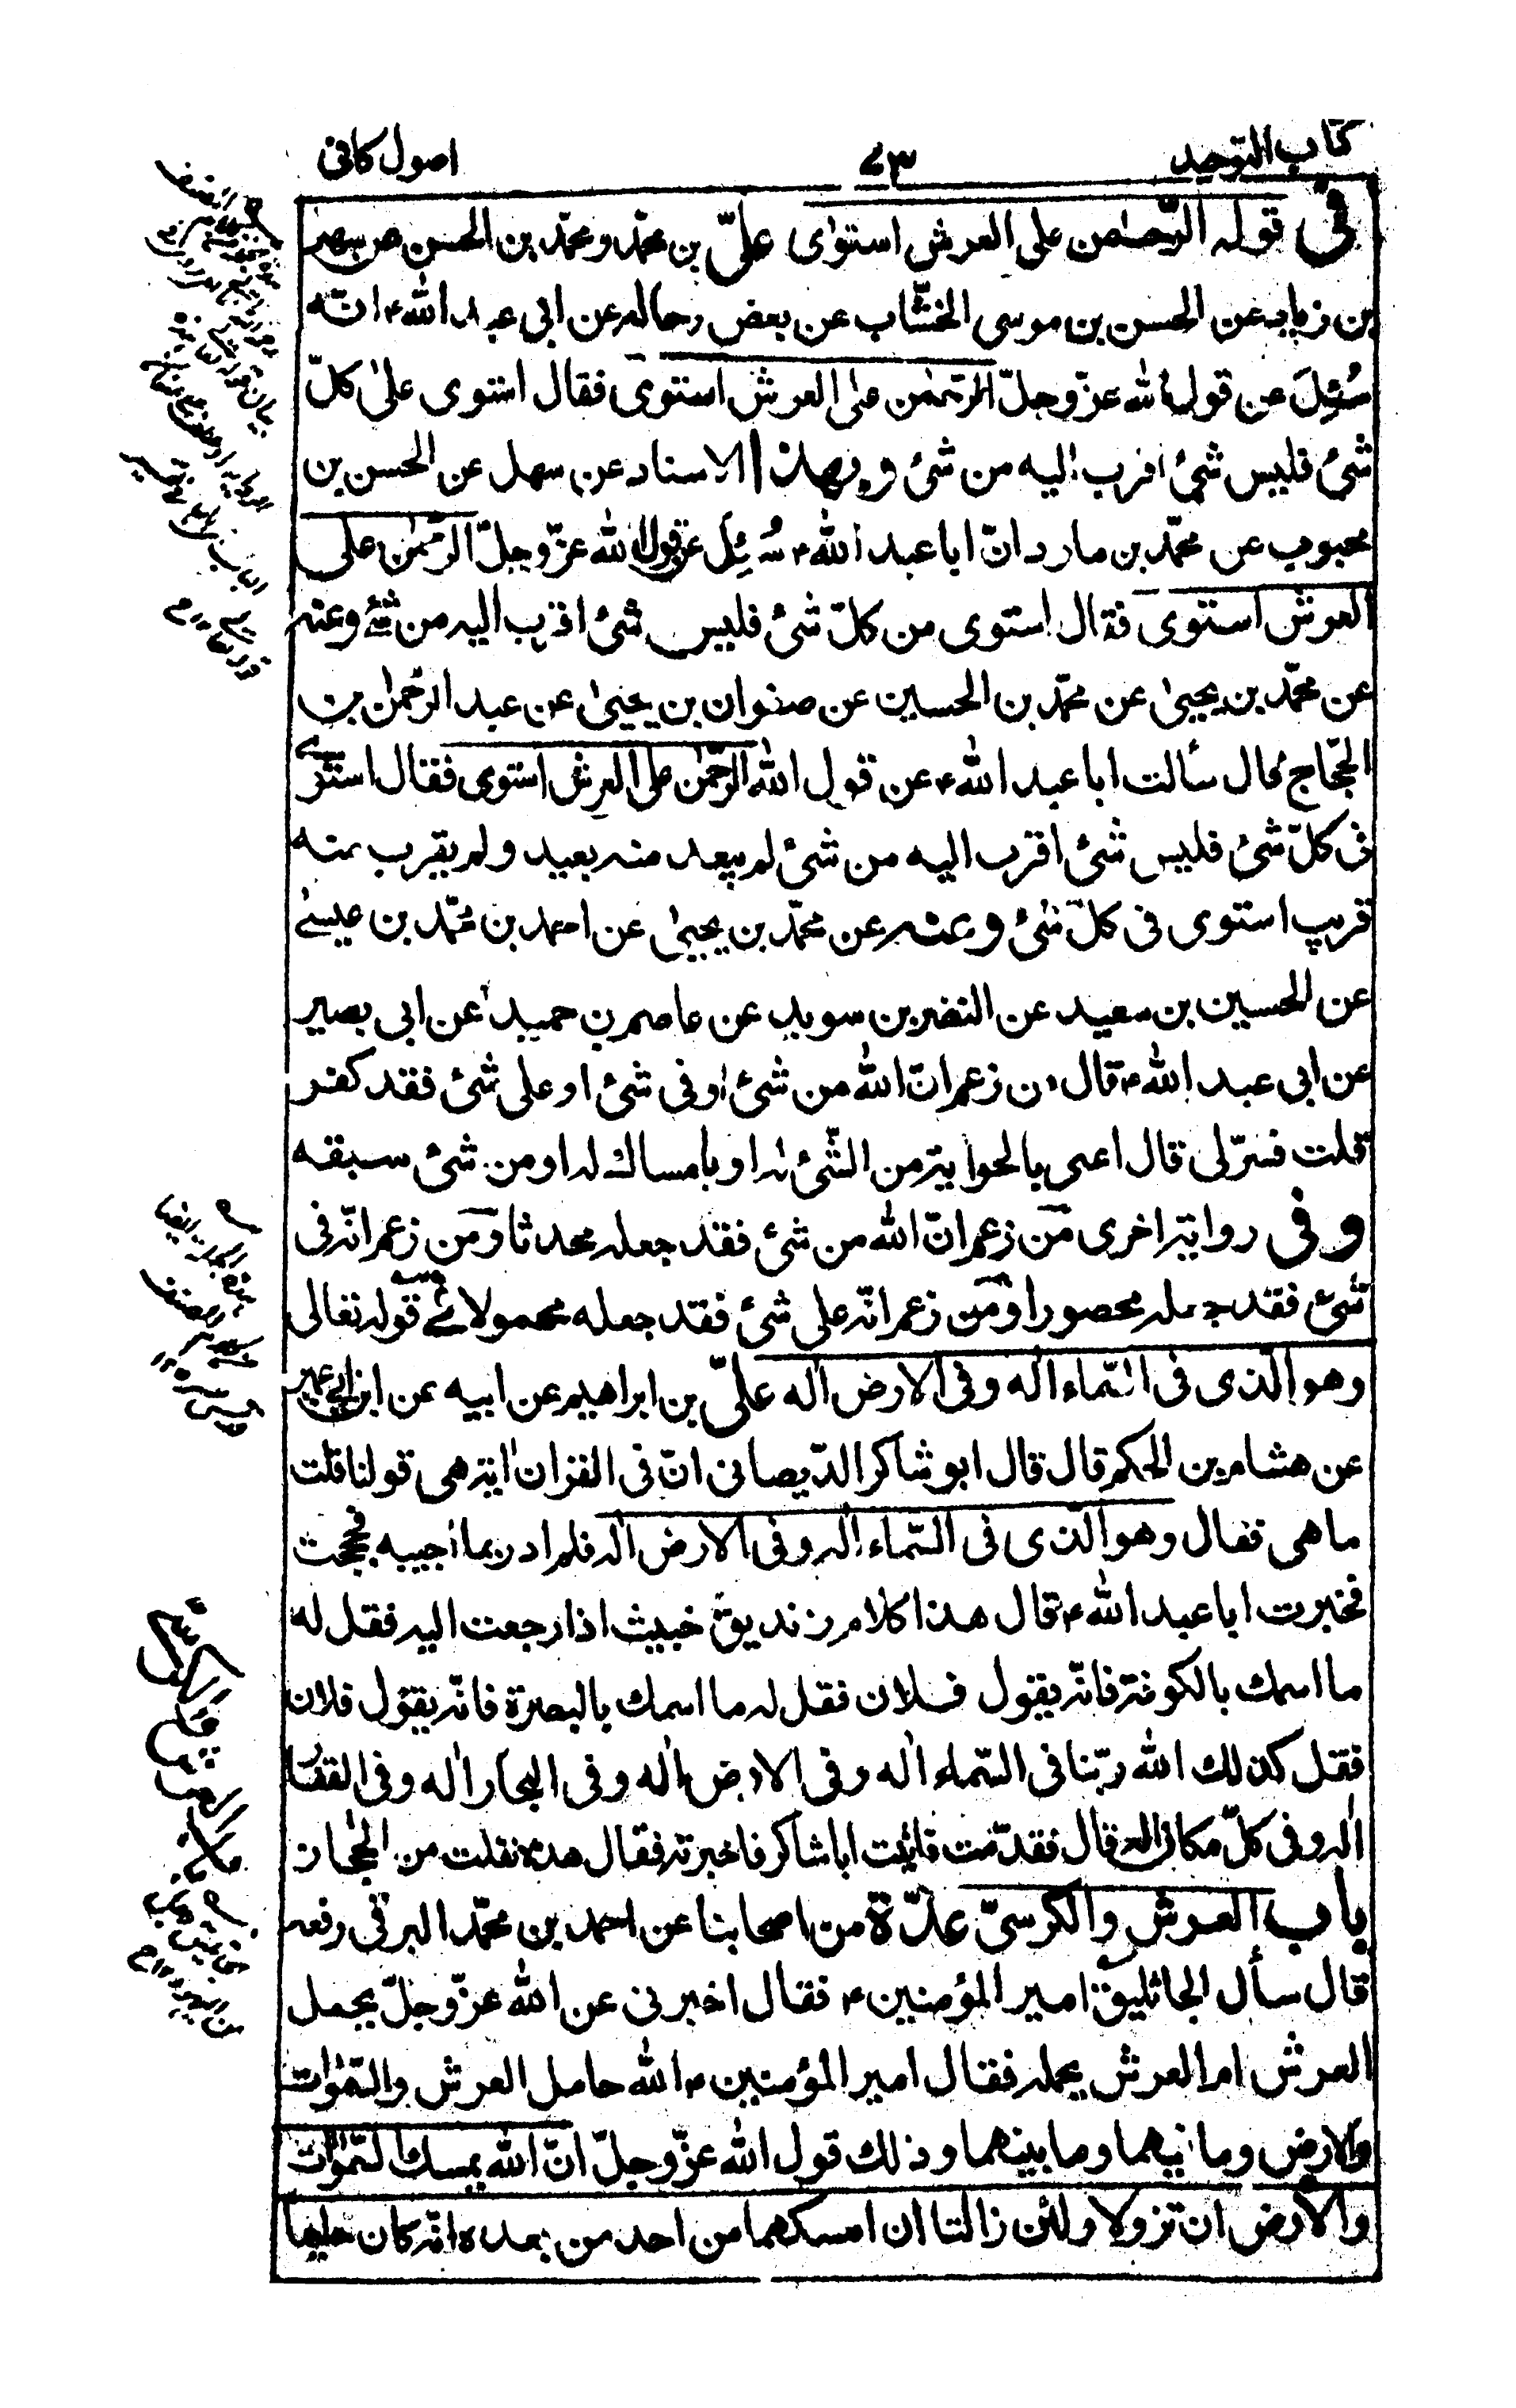 كتاب التوحيد
٧٣
اصول كافى
فى قوله الرّحمٰن على العرش استوٰى علىّ بن محمّد ومحمّد بن الحسن عن سهل
بن زياد عن الحسن بن موسى الخشّاب عن بعض رجاله عن ابى عبد الله ٤ انّه
سُئِلَ عن قول الله عزّ وجلّ الرّحمٰن على العرش استوى فقال استوى علىٰ كلّ
شئ فليس شئ اقرب اليه من شئ وبهذا الاسناد عن سهل عن الحسن بن
محبوب عن محمّد بن مارد انّ ابا عبد الله ٤ سُئِلَ عن قول الله عزّ وجلّ الرّحمٰن على
العرش استوى فقال استوى من كلّ شئ فليس شئ اقرب اليه من شئ وعنه
عن محمّد بن يحيىٰ عن محمّد بن الحسين عن صفوان بن يحيىٰ عن عبد الرّحمٰن بن
الحجّاج قال سألت ابا عبد الله ٤ عن قول الله الرّحمٰن على العرش استوى فقال استوى
فى كلّ شئ فليس شئ اقرب اليه من شئ لم يبعد منه بعيد ولم يقرب منه
قريب استوى فى كلّ شئ وعنه عن محمّد بن يحيىٰ عن احمد بن محمّد بن عيسىٰ
عن الحسين بن سعيد عن النضر بن سويد عن عاصم بن حميد عن ابى بصير
عن ابى عبد الله ٤ قال من زعم انّ الله من شئ او فى شئ او على شئ فقد كفر
قلت فسّر لى قال اعنى بالحواية من الشّئ له او بامساك له او من شئ سبقه
وفى رواية اخرى من زعم انّ الله من شئ فقد جعله محدثا ومن زعم انّه فى
شئ فقد جعله محصورا ومن زعم انّه على شئ فقد جعله محمولا فى قوله تعالى
وهو الّذى فى السّماء اله وفى الارض اله علىّ بن ابراهيم عن ابيه عن ابن ابى عمير
عن هشام بن الحكم قال قال ابو شاكر الدّيصانى انّ فى القران اية هى قولنا قلت
ما هى فقال وهو الّذى فى السّماء اله وفى الارض اله فلم ادر بما اجيبه فحججت
فخبرت ابا عبد الله ٤ قال هذا كلام زنديق خبيث اذا رجعت اليه فقل له
ما اسمك بالكوفة فانّه يقول فلان فقل له ما اسمك بالبصرة فانّه يقول فلان
فقل كذلك الله ربّنا فى السّماء اله وفى الارض اله وفى البحار اله وفى القفار
اله وفى كلّ مكان اله قال فقدّمت فاتيت ابا شاكر فاخبرته فقال هذه نقلت من الحجاز
باب العرش والكرسىّ عدّة من اصحابنا عن احمد بن محمّد البرقى رفعه
قال سأل الجاثليق امير المؤمنين ٤ فقال اخبرنى عن الله عزّ وجلّ يحمل
العرش ام العرش يحمله فقال امير المؤمنين ٤ الله حامل العرش والسّمٰوات
والارض وما فيهما وما بينهما وذلك قول الله عزّ وجلّ انّ الله يمسك السّمٰوات
والارض ان تزولا ولئن زالتا ان امسكهما من احد من بعده انّه كان حليما